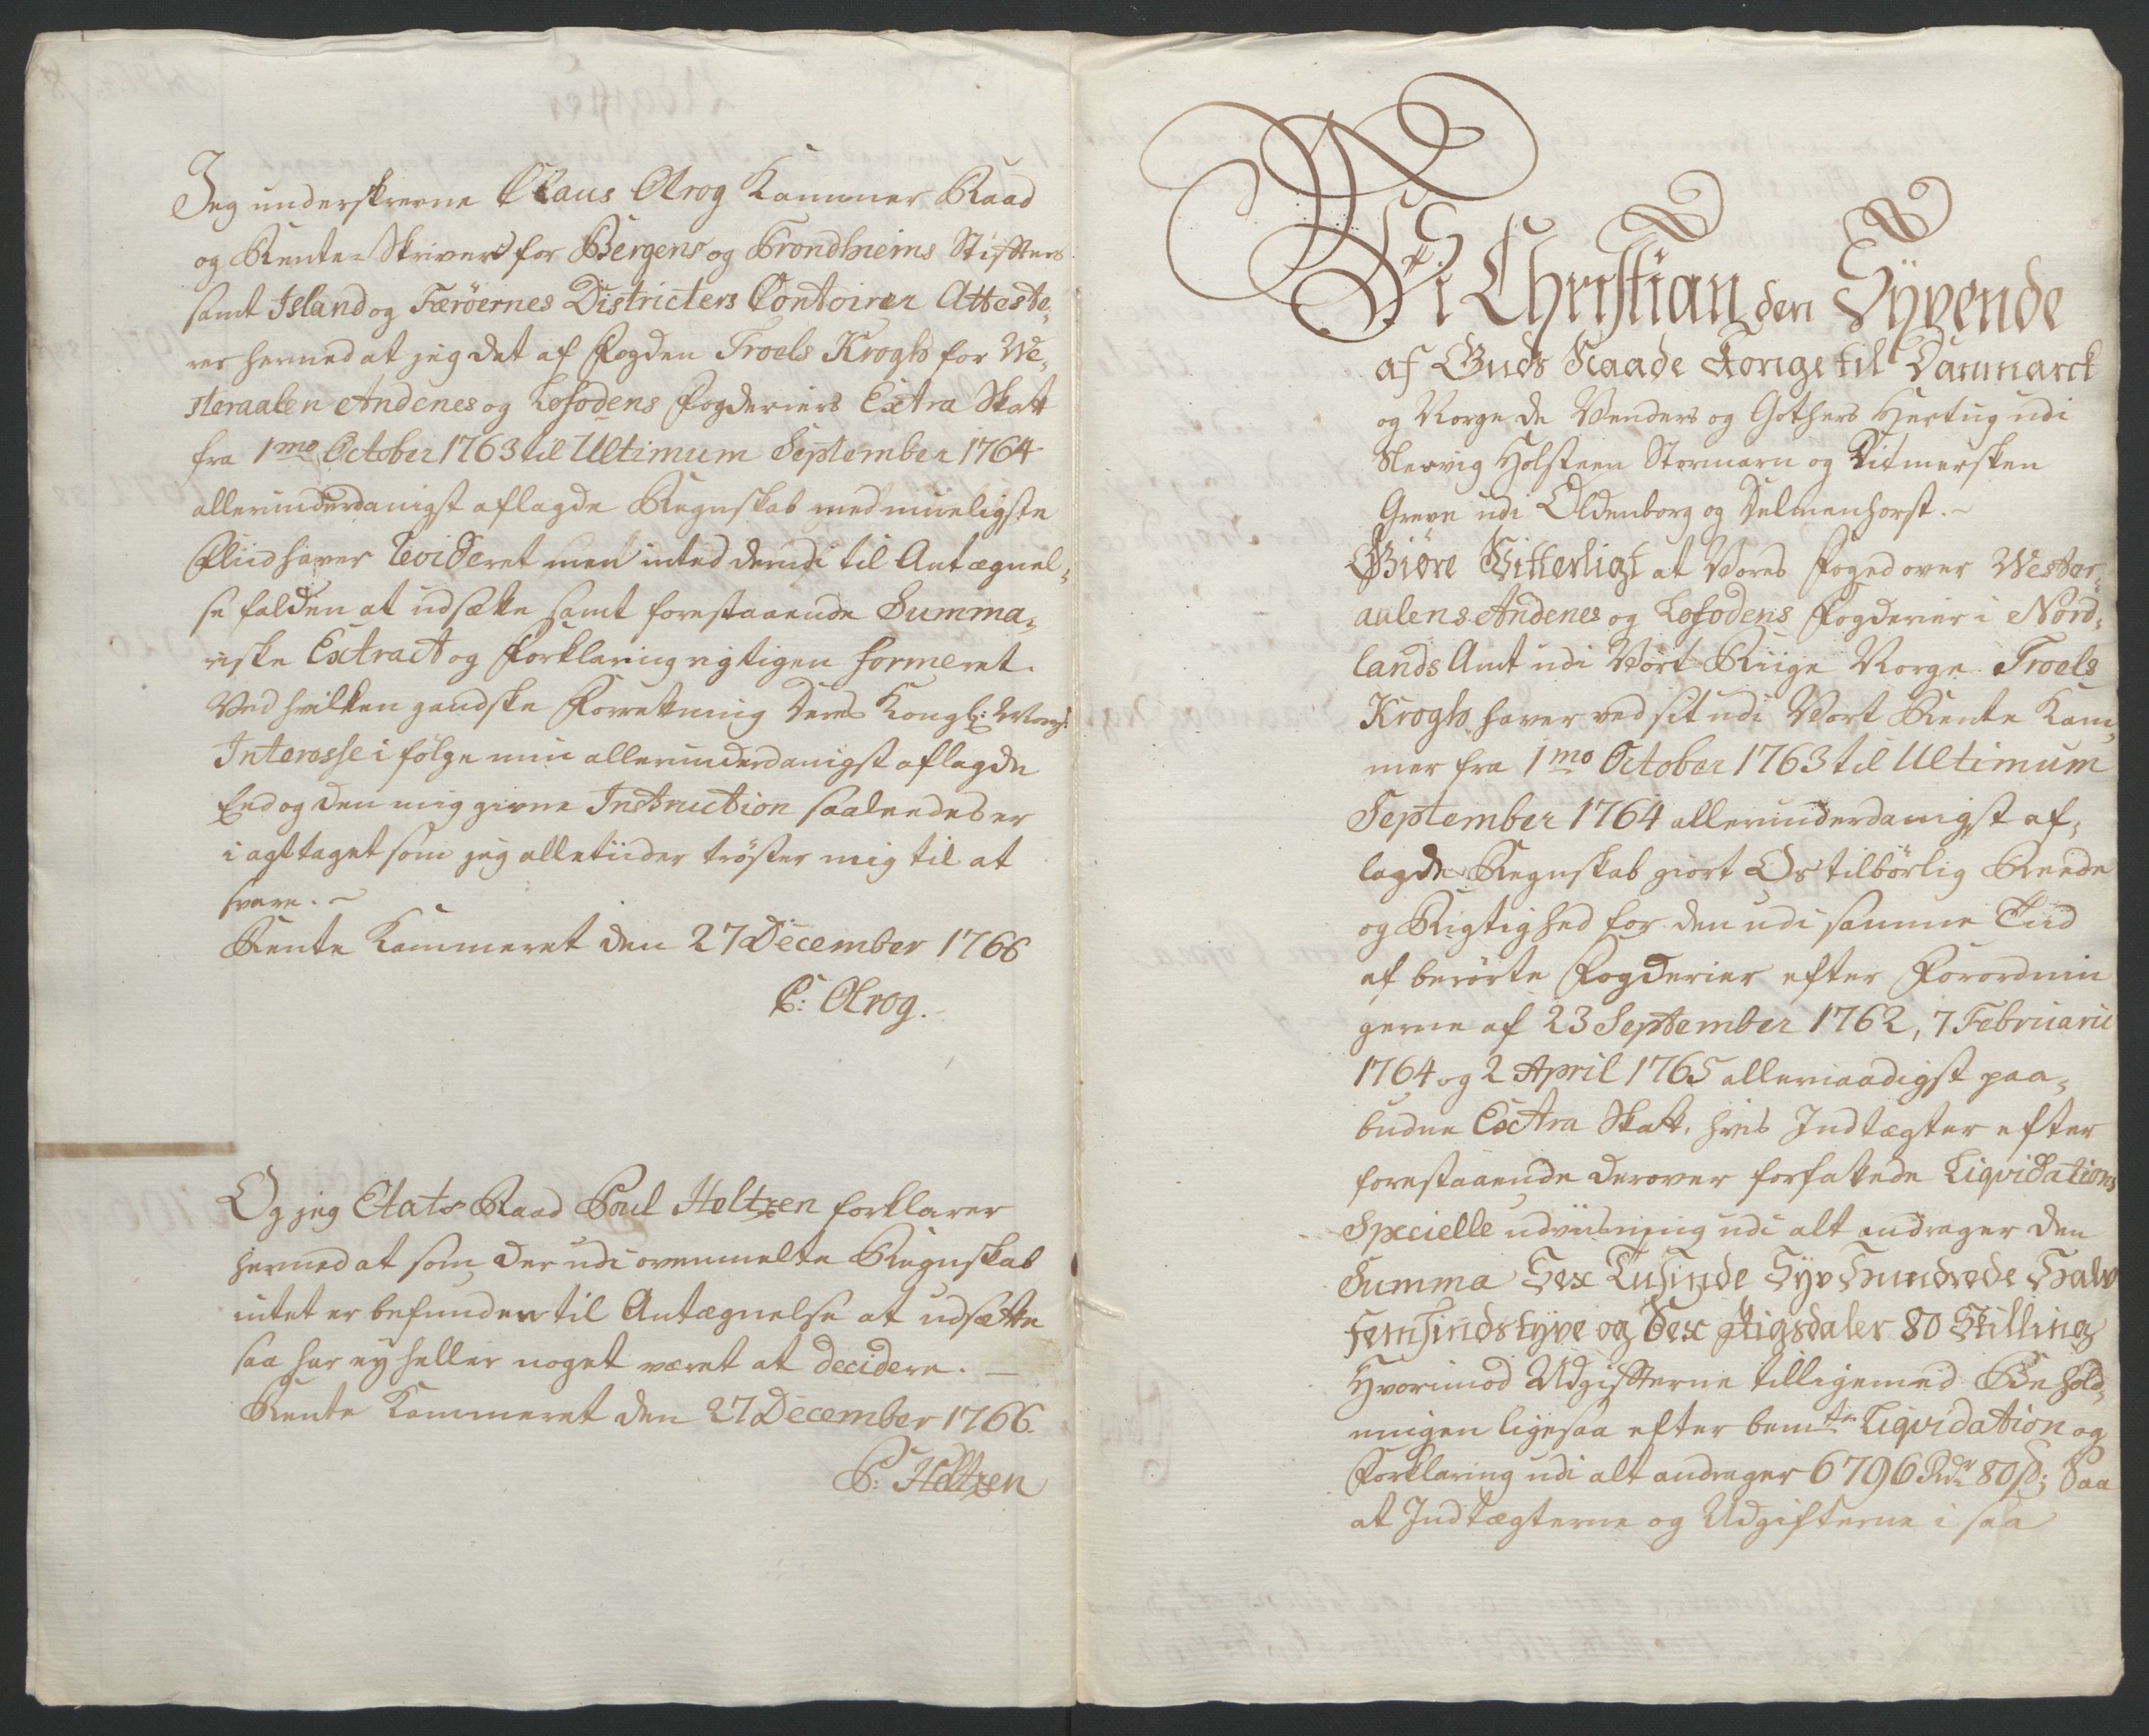 Jeg underskrevne Claus Olrog Kammer Raad
og Rente-Skriver for Bergens og Trondhiems Stifters
samt Island og Færöernes Districters Contoirer Atteste-
rer hermed at jeg det af Fogden Troels Krogh for We-
steraalen Andenes og Lofodens Fogderiers Extra Skatt
fra 1mo October 1763 til Ultimum September 1764
allerunderdanigst aflagde Regnskab med mueligste
Fliid haver Revideret men intet derudi til Antægnel-
se falden at udsætte samt forestaaende Summa-
riske Extract og Forklaring rigtigen formeret.
Ved hvilken gandske Forretning Deres Kongl: Mays:
Interesse i fölge min allerunderdanigst aflagde
Eed og den mig givne Instruction saaledes er
i agt taget som jeg alletiider tröster mig til at
svare. ~
Rente Kammeret den 27 December 1766
C: Olrog.
Og jeg Etats Raad Poul Heltzen forklarer
hermed at som der udi ovenmelte Regnskab
intet er befunden til Antægnelse at udsætte
saa har ey heller noget været at decidere. —
Rente Kammeret den 27 December 1766.
P: Heltzen
Vi Christian den Syvende
af Guds Naade Konge til Danmarck
og Norge de Venders og Gothers Hertug udi
Slesvig Holsteen Stormarn og Ditmersken
Greve udi Oldenborg og Delmenhorst. ~
Giöre Vitterligt at Vores Foged over Wester-
aalens Andenes og Lofodens Fogderier i Nord-
lands Amt udi Vört Riige Norge Troels
Krogh haver ved sit udi Vort Rente Kam-
mer fra 1mo October 1763 til Ultimum
September 1764 allerunderdanigst af-
lagde Regnskab giort Os tilbörlig Reede
og Rigtighed for den udi samme Tiid
af berörte Fogderier efter Forordnin
gerne af 23 September 1762, 7 Februarii
1764 og 2 April 1765 allernaadigst paa-
budne Extra Skatt, hvis Indtægter efter
forestaaende derover forfattede Liqvidations
Specielle udviisning udi alt andrager den
Summa Sex Tusinde Syv Hundrede Halv
femsindstyve og Sex Rigsdaler 80 Skilling
Hvorimod Udgifterne tilligemed Behold-
ningen ligesaa efter bemte Liqvidation og
Forklaring udi alt andrager 6796 Rdr 80 ß; Saa
at Indtægterne og Udgifterne i saa